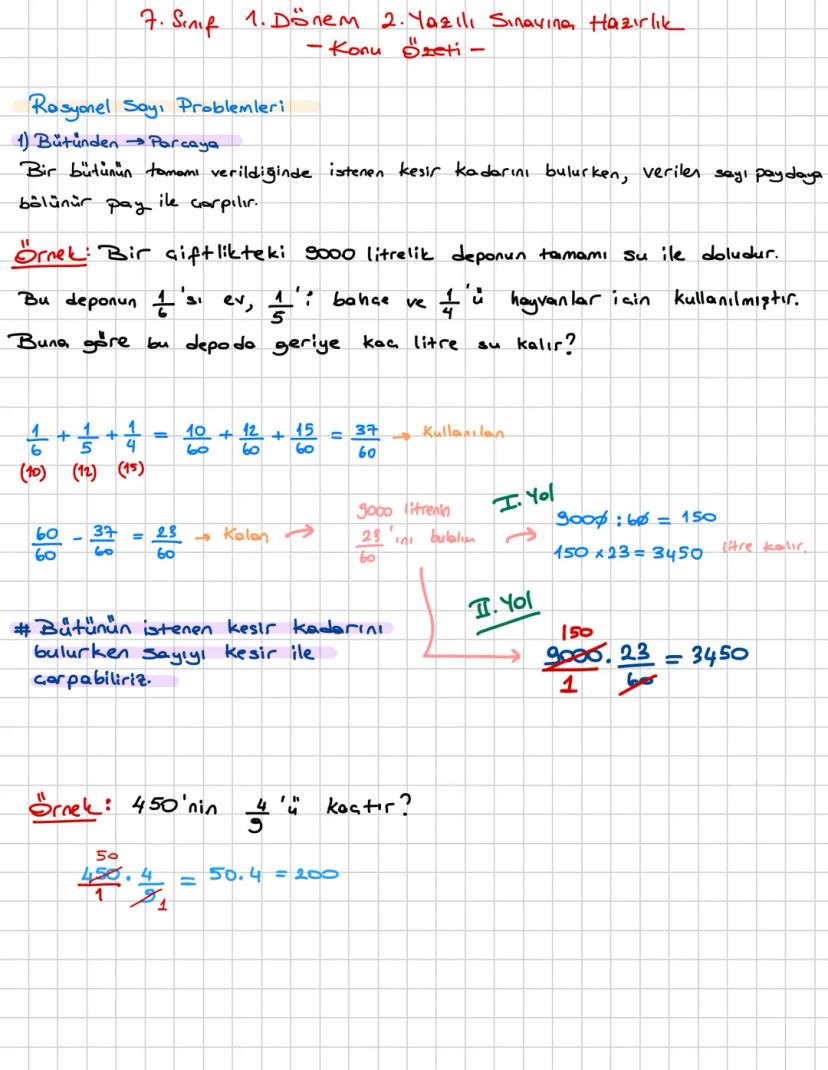 7. Sınıf 1. Dönem 2. Yazılı Sınavına Hazırlık
- Konu Özeti -
Rasyonel Sayı Problemleri
1) Bütünden → Parçaya
Bir bütünün tamamı verildiğinde istenen kesir kadarını bulurken, verilen sayı paydaya
bölünür pay ile çarpılır.
Örnek: Bir çiftlikteki 9000 litrelik deponun tamamı su ile doludur.
Bu deponun 1/6'sı ev, 1/5'i bahçe ve 1/4'ü hayvanlar için kullanılmıştır.
Buna göre bu depoda geriye kaç litre su kalır?
1/6 + 1/5 + 1/4 = 10/60 + 12/60 + 15/60 = 37/60 → Kullanılan
(10) (12) (15)
60/60 - 37/60 = 23/60 → Kalan →
9000 litrenin
23/60 'ını bulalım →
I. Yol
9000 : 60 = 150
150 x 23 = 3450 litre kalır.
II. Yol
150
9000/1 . 23/60 = 3450
# Bütünün istenen kesir kadarını
bulurken sayıyı kesir ile
çarpabiliriz.
Örnek: 450'nin 4/9'ü kaçtır?
50
450/1 . 4/9 = 50.4 = 200
1